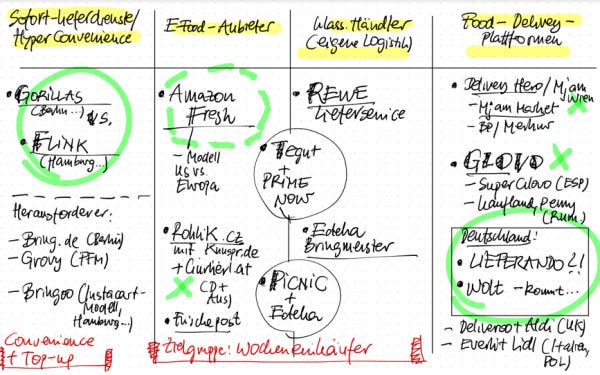 Sofort-Lieferdienste/
Hyper Convenience
• GORILLAS
(Berlin...) VS.
• FLINK
(Hamburg...)
Herausforderer:
- Bring.de (Berlin)
- Grovy (FFM)
- Bringoo (Instacart-
Modell,
Hamburg...)
Convenience
+ Top-up
E-Food-Anbieter
• Amazon
Fresh
- Modell
US vs.
Europa
• Rohlik.cz
mit Knuspr.de
+ Gurkerl.at
(D+
Aus)
• Frischepost
Zielgruppe: Wocheneinkäufer
Klass. Händler
(eigene Logistik)
• REWE
Lieferservice
• Tegut
+
PRIME
NOW
• Edeka
Bringmeister
• PICNIC
+
Edeka
Food-Delivery-
Plattformen
• Delivery Hero/Mjam
Wien
- Mjam Market
- BP/Merkur
• GLOVO
- SuperGlovo (ESP)
- Kaufland, Penny
(Rum.)
Deutschland:
• LIEFERANDO?!
• Wolt - kommt...
- Deliveroo + Aldi (UK)
- Everli + Lidl (Italien,
POL)